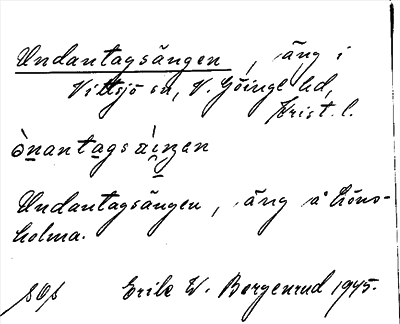 Undantagsängen, äng i
Vittsjö sn, V. Göinge hd,
Krist. l.
ònantagsàiŋen
Undantagsängen, äng å Höns-
holma.
Erik W. Bergenrud 1945.